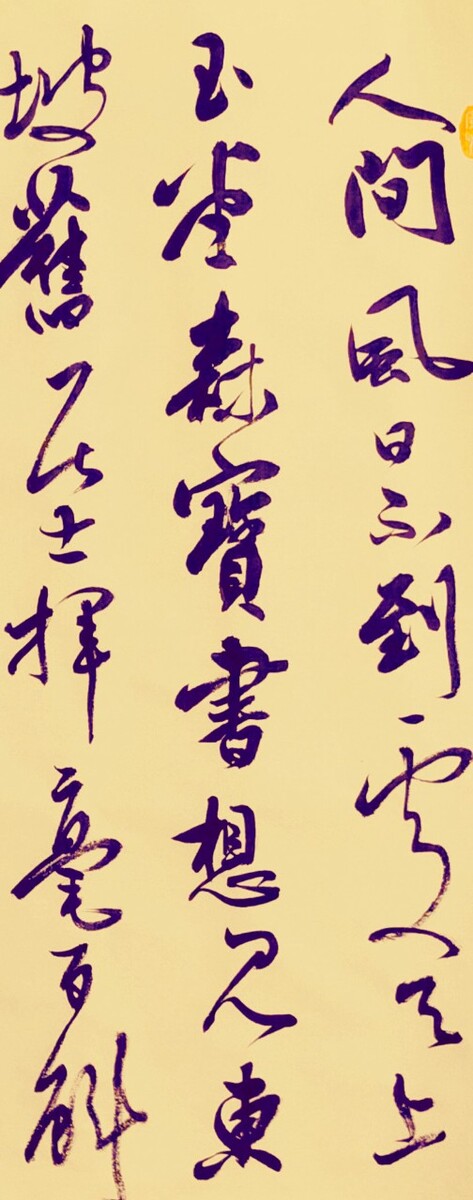 人間風日不到處天上
玉堂森寶書想見東
坡舊居士揮毫百斛